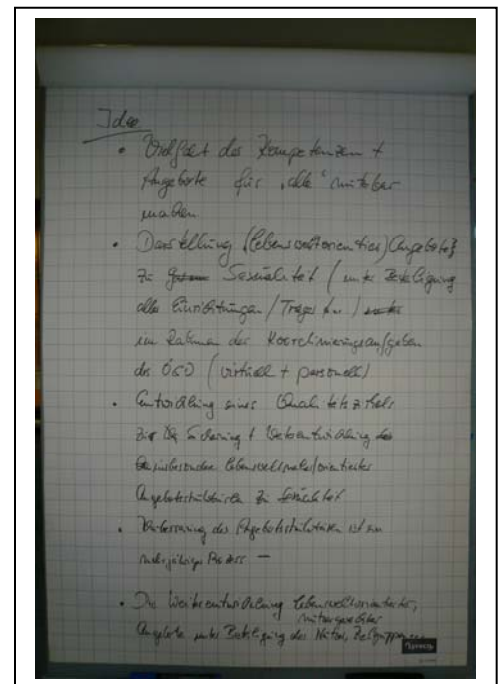 Idee
• Vielfalt der Kompetenzen +
Angebote für „alle“ nutzbar
machen
• Darstellung (lebensweltorientier) Angebote
zu Sexualität (unter Beteiligung
aller Einrichtungen / Träger
im Rahmen der Koordinierungsaufgaben
des ÖGD (virtuell + personell)
• Entwicklung eines Qualitätszirkels
zur Sicherung + Weiterentwicklung
insbesondere
Angebotsstrukturen zu Sexualität
• Verbesserung der Angebotsstrukturen ist ein
mehrjähriger Prozess –
• Die Weiterentwicklung lebensweltorientierter,
Angebote unter Beteiligung der Nutzer, Zielgruppen